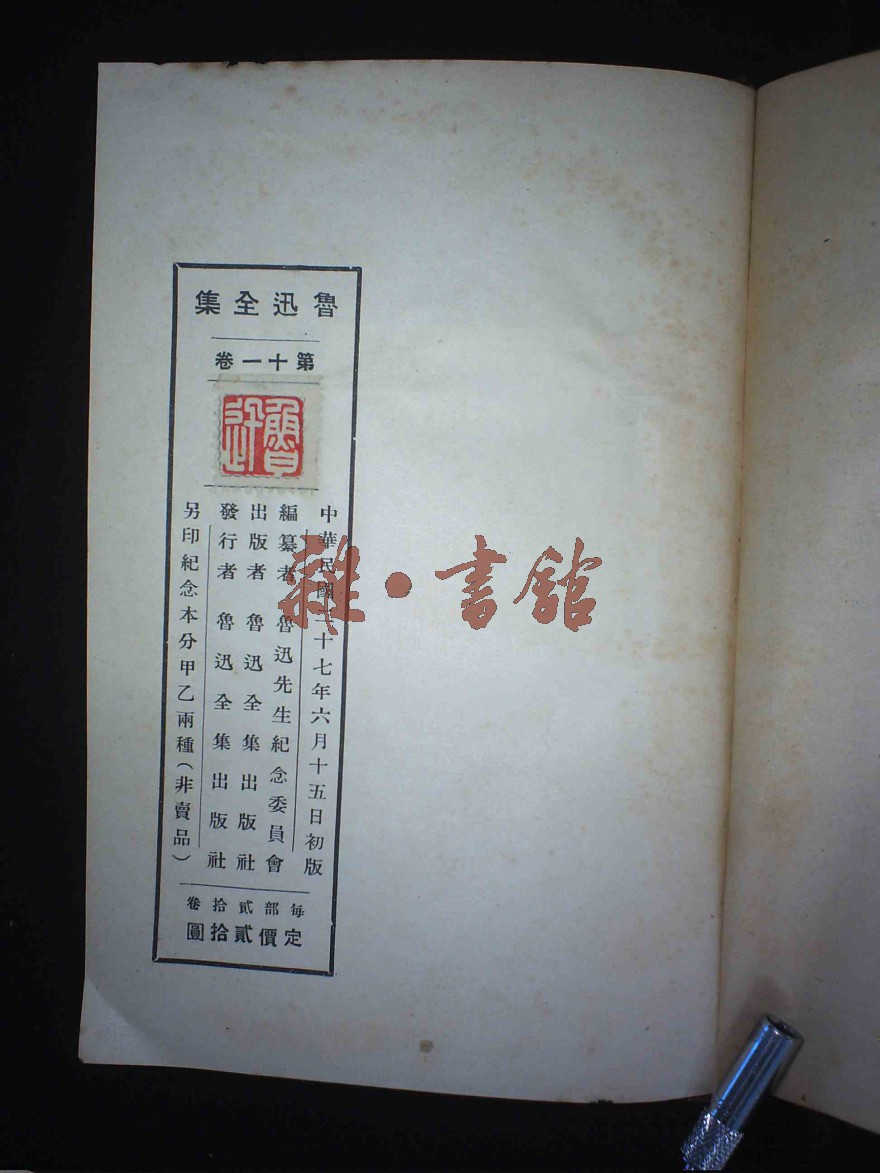 魯迅全集
第十一卷
魯迅
中華民國二十七年六月十五日初版
編纂者 魯迅先生紀念委員會
出版者 魯迅全集出版社
發行者 魯迅全集出版社
另印紀念本分甲乙兩種(非賣品)
每部貳拾卷
定價貳拾圓
雜·書館